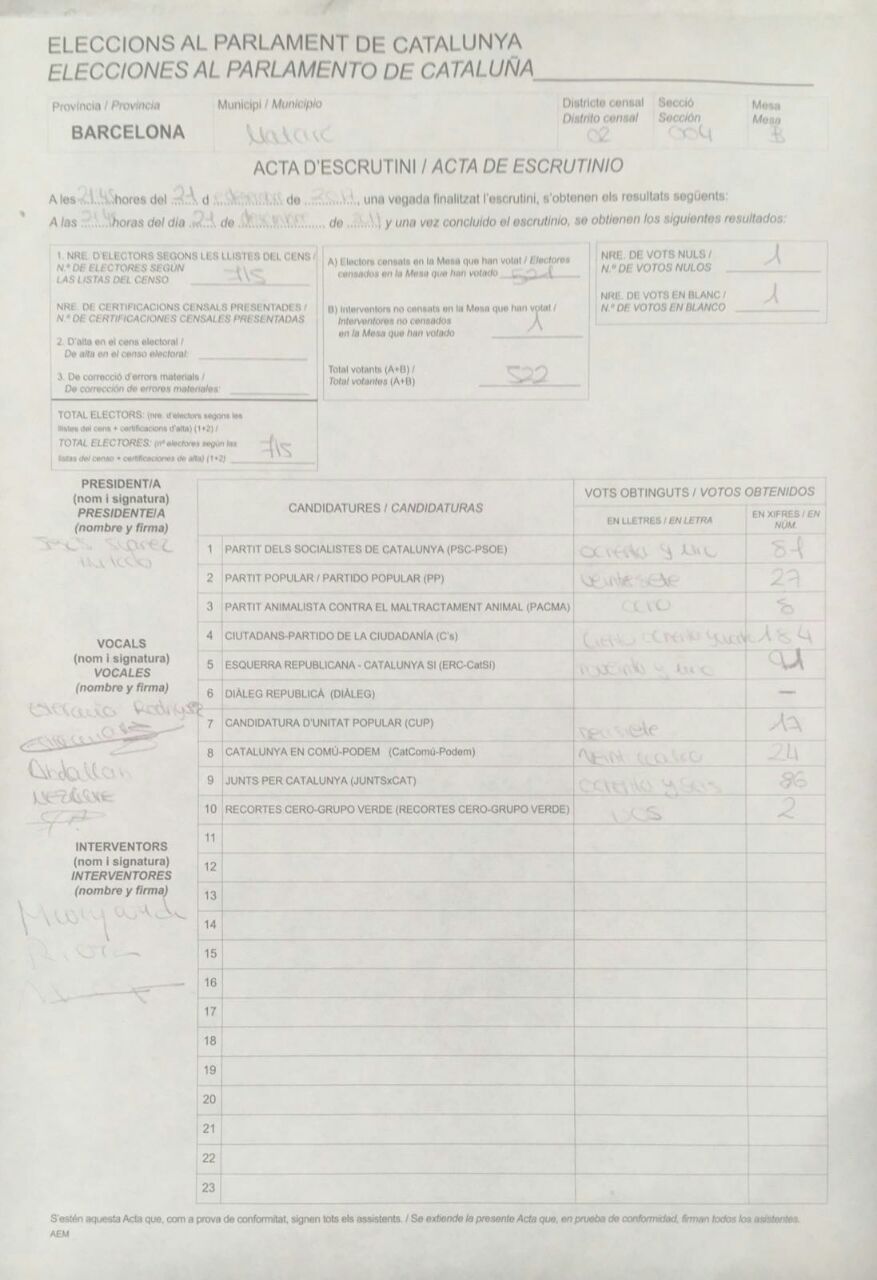 ELECCIONS AL PARLAMENT DE CATALUNYA
ELECCIONES AL PARLAMENTO DE CATALUÑA
Provincia / Provincia
BARCELONA
Municipi / Municipio
Mataró
Districte censal
Distrito censal
02
Secció
Sección
004
Mesa
Mesa
B
ACTA D'ESCRUTINI / ACTA DE ESCRUTINIO
A les 21:45 hores del 21 d de 2017, una vegada finalitzat l'escrutini, s'obtenen els resultats següents:
A las 21:45 horas del día 21 de diciembre de 2017 y una vez concluido el escrutinio, se obtienen los siguientes resultados:
1. NRE. D'ELECTORS SEGONS LES LLISTES DEL CENS /
N.º DE ELECTORES SEGÚN
LAS LISTAS DEL CENSO 715
NRE. DE CERTIFICACIONS CENSALS PRESENTADES /
N.º DE CERTIFICACIONES CENSALES PRESENTADAS
2. D'alta en el cens electoral /
De alta en el censo electoral:
3. De correcció d'errors materials /
De corrección de errores materiales:
TOTAL ELECTORS: (nre. d'electors segons les
llistes del cens + certificacions d'alta) (1+2) /
TOTAL ELECTORES: (nº electores según las 715
listas del censo + certificaciones de alta) (1+2)
A) Electors censats en la Mesa que han votat / Electores
censados en la Mesa que han votado 521
B) Interventors no censats en la Mesa que han votat /
Interventores no censados
en la Mesa que han votado 1
Total votants (A+B) /
Total votantes (A+B) 522
NRE. DE VOTS NULS /
N.º DE VOTOS NULOS 1
NRE. DE VOTS EN BLANC /
N.º DE VOTOS EN BLANCO 1
PRESIDENT/A
(nom i signatura)
PRESIDENTE/A
(nombre y firma)
Suarez
VOCALS
(nom i signatura)
VOCALES
(nombre y firma)
Estefania Rodriguez
Abdallah
INTERVENTORS
(nom i signatura)
INTERVENTORES
(nombre y firma)
CANDIDATURES / CANDIDATURAS
VOTS OBTINGUTS / VOTOS OBTENIDOS
EN LLETRES / EN LETRA
EN XIFRES / EN NÚM.
1 PARTIT DELS SOCIALISTES DE CATALUNYA (PSC-PSOE) ochenta y uno 81
2 PARTIT POPULAR / PARTIDO POPULAR (PP) veintesiete 27
3 PARTIT ANIMALISTA CONTRA EL MALTRACTAMENT ANIMAL (PACMA) ocho 8
4 CIUTADANS-PARTIDO DE LA CIUDADANÍA (C's) ciento ochenta y cuatro 184
5 ESQUERRA REPUBLICANA - CATALUNYA SI (ERC-CatSI) noventa y uno 91
6 DIÀLEG REPUBLICÀ (DIÀLEG) —
7 CANDIDATURA D'UNITAT POPULAR (CUP) 17
8 CATALUNYA EN COMÚ-PODEM (CatComú-Podem) 24
9 JUNTS PER CATALUNYA (JUNTSxCAT) ochenta y seis 86
10 RECORTES CERO-GRUPO VERDE (RECORTES CERO-GRUPO VERDE) DOS 2
11
12
13
14
15
16
17
18
19
20
21
22
23
S'estén aquesta Acta que, com a prova de conformitat, signen tots els assistents. / Se extiende la presente Acta que, en prueba de conformidad, firman todos los asistentes.
AEM